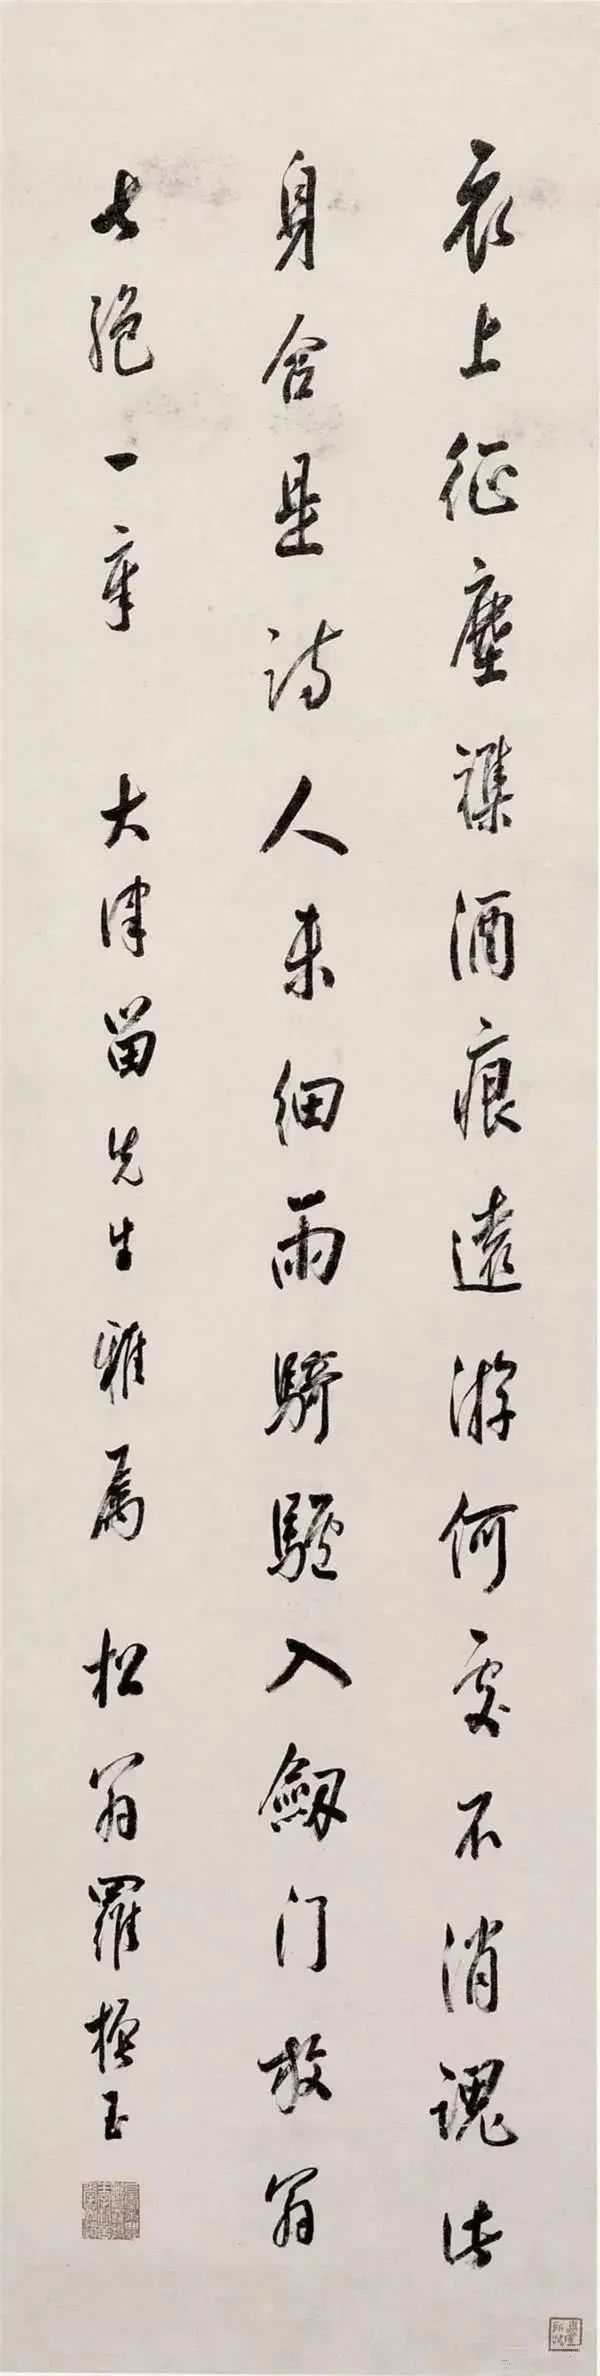 衣上征塵襍酒痕遠游何處不消魂此
身合是詩人未細雨騎驢入劔門放翁
七絕一章　大津留先生雅属　松翁羅振玉